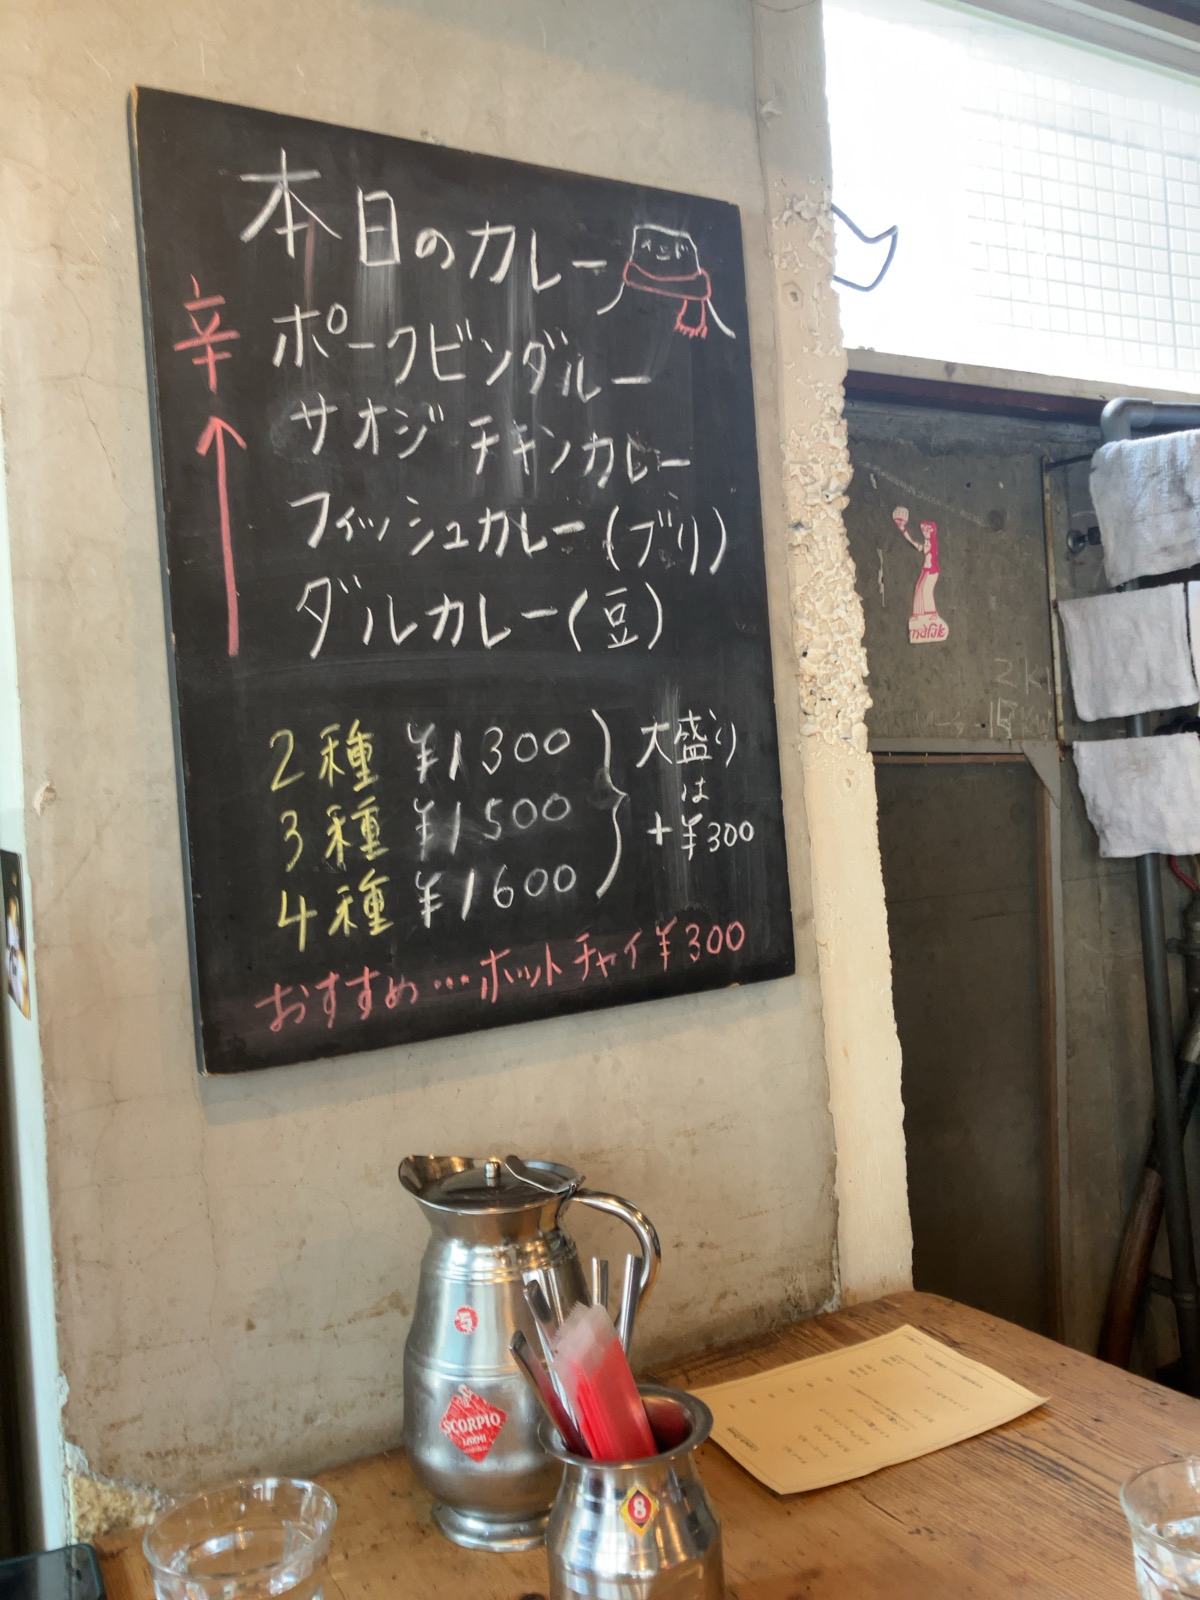 本日のカレー
インド
辛
ポークビンダルー
サオジ チキンカレー
フィッシュカレー(ブリ)
ダルカレー(豆)
2種 ¥1300
3種 ¥1500
4種 ¥1600
大盛り
は
+¥300
おすすめ…ホットチャイ¥300
5
SCORPIO
LAXMI
8